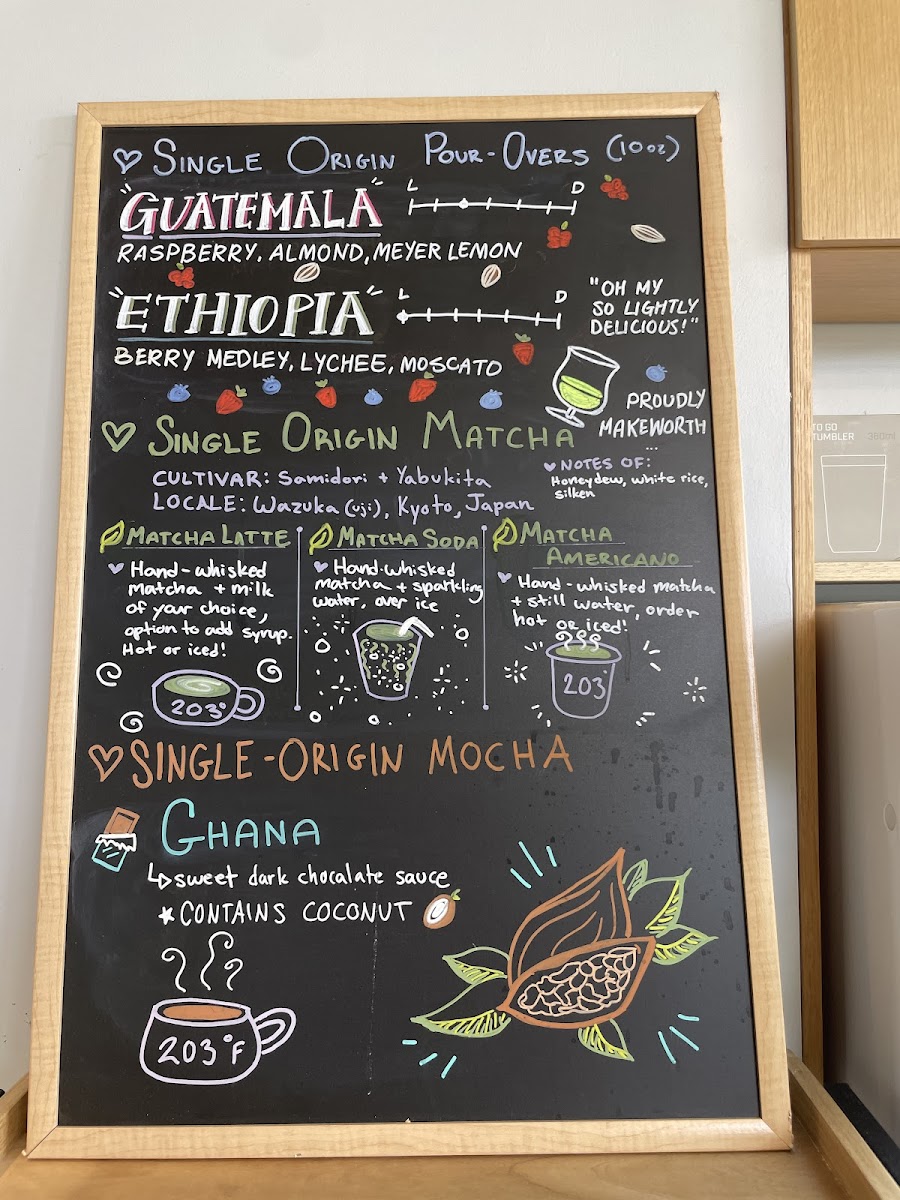 SINGLE ORIGIN POUR-OVERS (10oz)
"GUATEMALA"
L D
RASPBERRY, ALMOND, MEYER LEMON
"ETHIOPIA"
L D
BERRY MEDLEY, LYCHEE, MOSCATO
"OH MY
SO LIGHTLY
DELICIOUS!"
PROUDLY
MAKEWORTH
...
SINGLE ORIGIN MATCHA
CULTIVAR: Samidori + Yabukita
LOCALE: Wazuka (uji), Kyoto, Japan
NOTES OF:
Honeydew, white rice,
silken
MATCHA LATTE
Hand-whisked
matcha + milk
of your choice,
option to add syrup.
Hot or iced!
203°
MATCHA SODA
Hand-whisked
matcha + sparkling
water, over ice
MATCHA
AMERICANO
Hand-whisked matcha
+ still water, order
hot or iced!
203°
SINGLE-ORIGIN MOCHA
GHANA
sweet dark chocalate sauce
*CONTAINS COCONUT
203°F
TO GO
TUMBLER 360ml